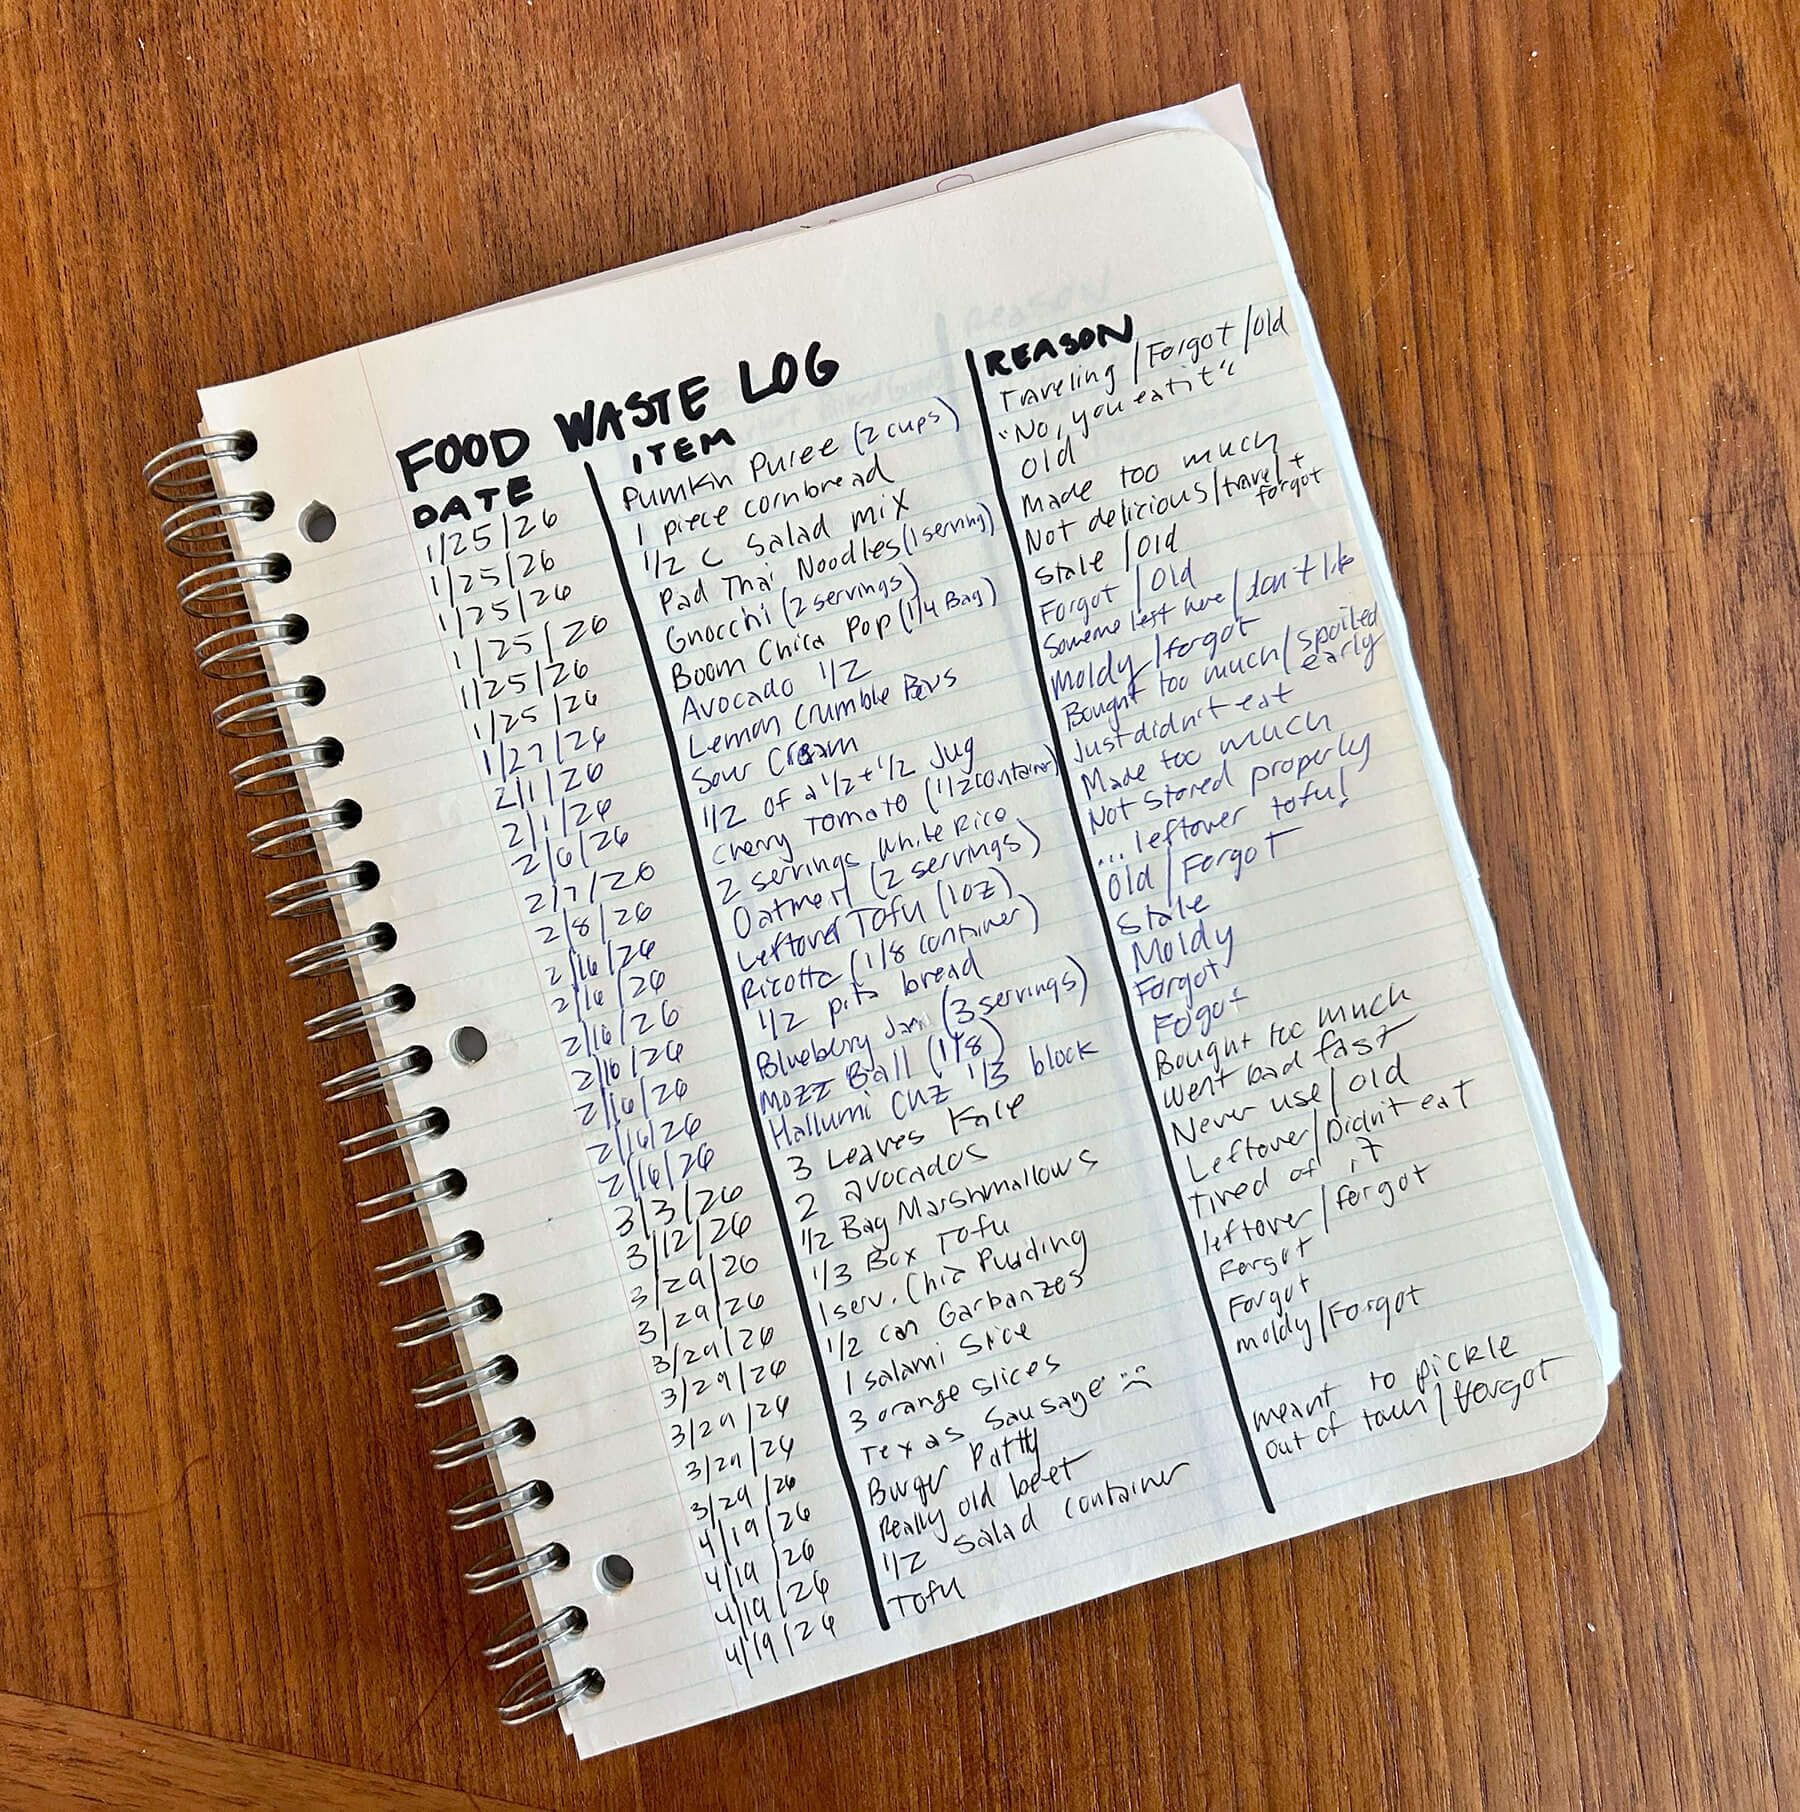 FOOD WASTE LOG
DATE ITEM REASON
1/25/26 Pumkin Puree (2 cups) Traveling/Forgot/Old
1/25/26 1 piece cornbread "No, you eat it"
1/25/26 1/2 C salad mix Old
1/25/26 Pad Thai Noodles (1 serving) Made too much
1/25/26 Gnocchi (2 servings) Not delicious/travel + forgot
1/25/26 Boom Chica Pop (1/4 Bag) Stale/Old
1/27/26 Avocado 1/2 Forgot/Old
2/1/26 Lemon Crumble Bars Someone left here/don't like
2/1/26 Sour Cream Moldy/forgot
2/6/26 1/2 of a 1/2 + 1/2 Jug Bought too much/spoiled early
2/7/26 Cherry Tomato (1/2 container) Just didn't eat
2/8/26 2 servings White Rice Made too much
2/16/26 Oatmeal (2 servings) Not stored properly
2/16/26 Leftover Tofu (1oz) ...leftover tofu!
2/16/26 Ricotta (1/8 container) Old/Forgot
2/16/26 1/2 pita bread Stale
2/16/26 Blueberry Jam (3 servings) Moldy
2/16/26 Mozz Ball (1/8) Forgot
2/16/26 Hallumi Chz 1/3 block Fogot
3/3/26 3 Leaves Kale Bought too much
3/12/26 2 avocados Went bad fast
3/29/26 1/2 Bag Marshmallows Never use/old
3/29/26 1/3 Box Tofu Leftover/Didn't eat
3/29/26 1 serv. Chia Pudding Tired of it
3/29/26 1/2 can Garbanzos leftover/forgot
3/29/26 1 salami Slice Forgot
3/29/26 3 orange slices Forgot
3/29/26 Texas Sausage :( moldy/Forgot
4/19/26 Burger Patty
4/19/26 Really old beet meant to pickle
4/19/26 1/2 salad container out of town/forgot
4/19/26 Tofu